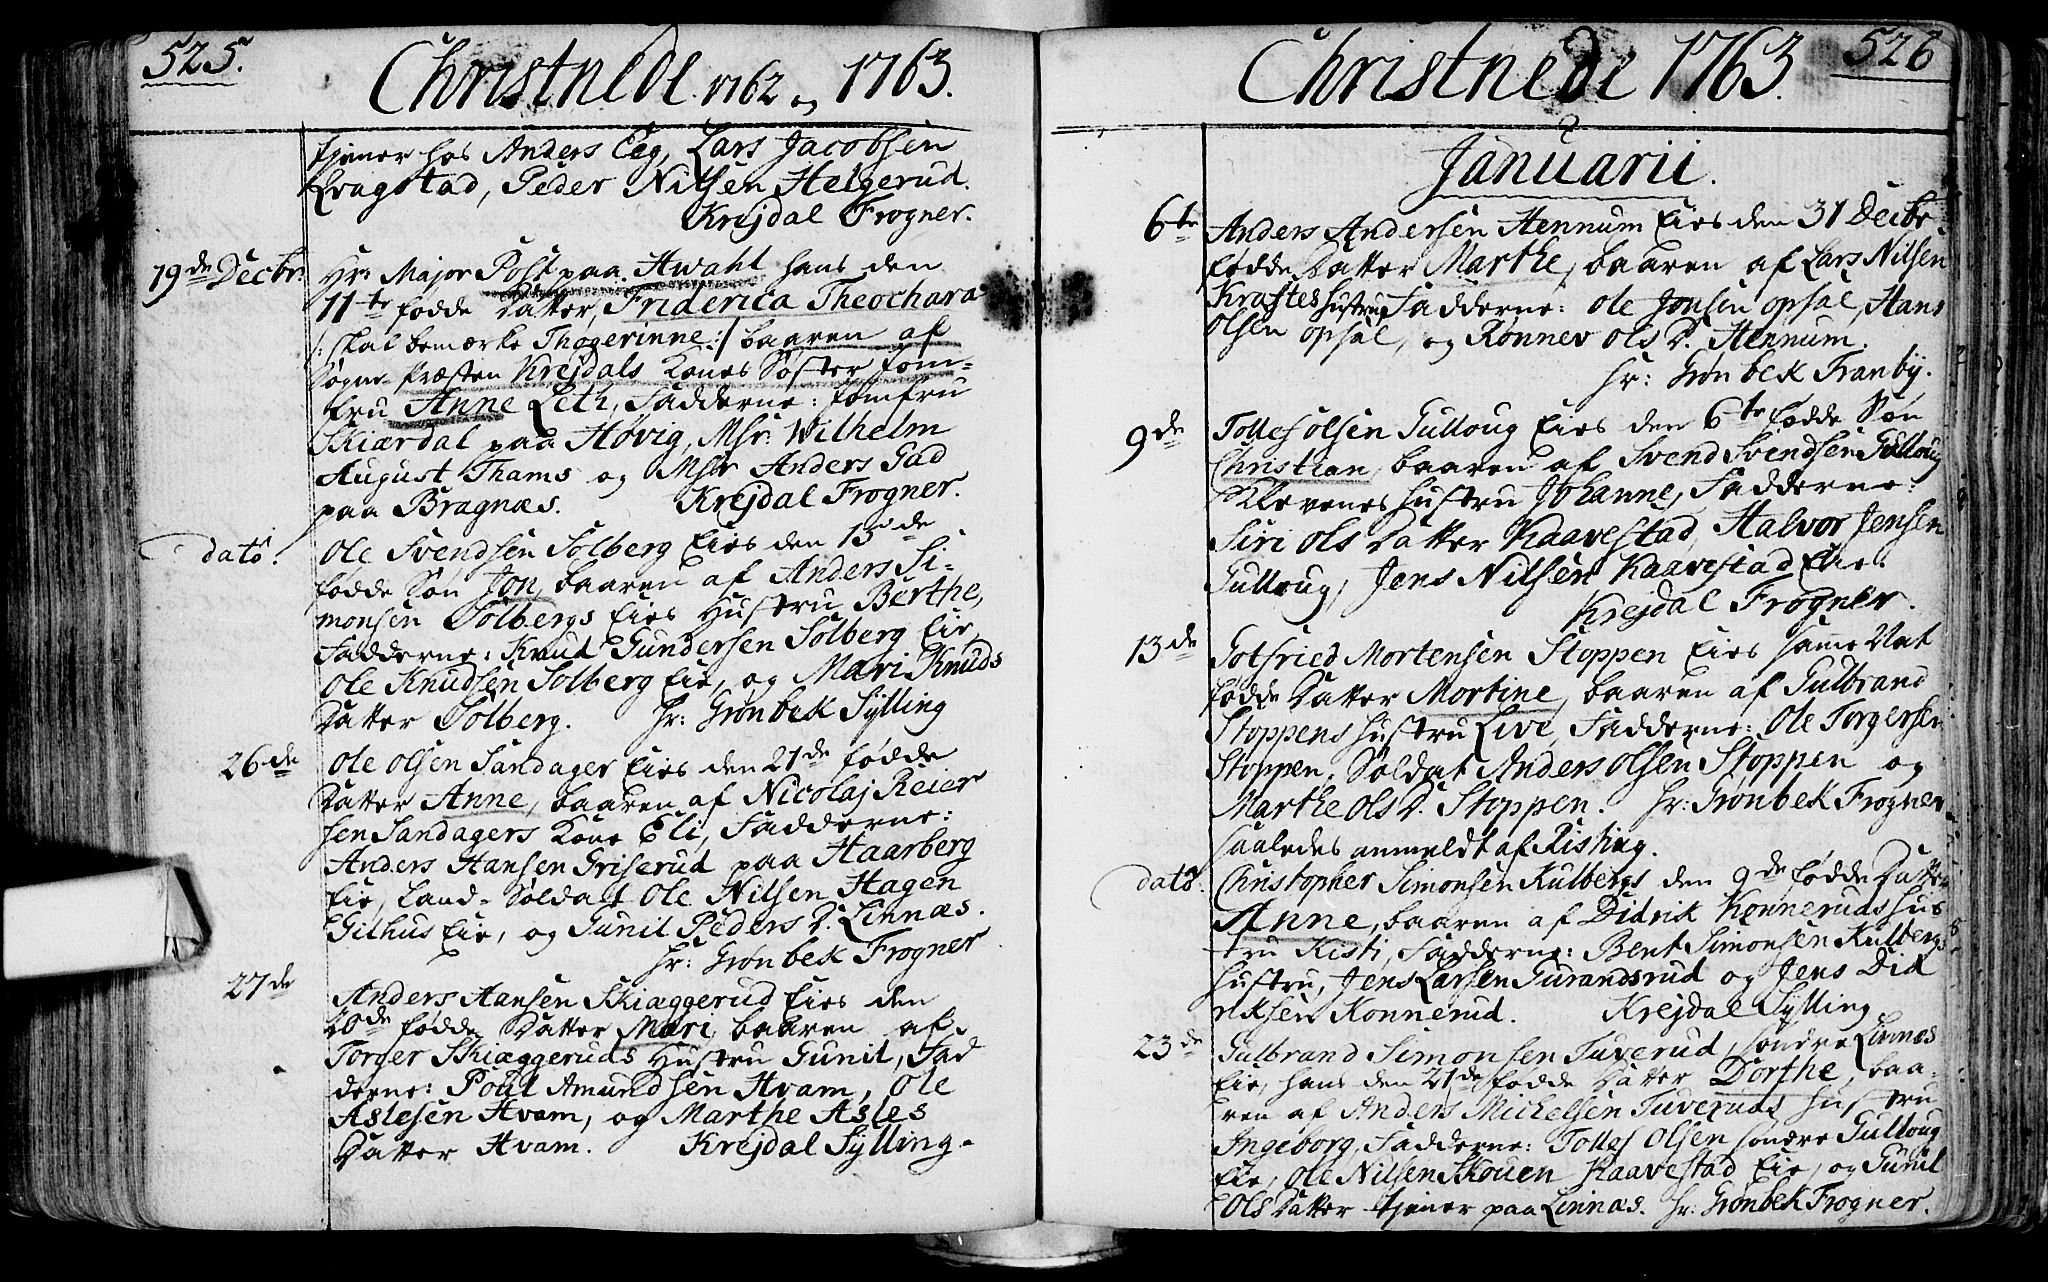 525.
Christnede 1762 og 1763.
tjener hos Anders Eeg, Lars Jacobsen
Kragstad, Peder Nilsen Helgerud.
Krejdal Frogner.
19de Decbr.
Hr: Major Post paa Hwahl hans den
11te fødde Datter, Friderica Theochara
/: skal bemærke Thogerinne:/ baaren af
Sogne-Præsten Krejdals Kones Søster Jom-
fru Anne Leth, Fadderne: Jomfru
Skiærdal paa Høvig, Msr: Wilhelm
August Thams og Msr Anders Gad
paa Bragnæs. Krejdal Frogner.
dato.
Ole Svendsen Solberg Eies den 15de
fødde Søn Jon, baaren af Anders Si-
monsen Solbergs Eies Hustru Berthe,
Fadderne: Knud Gundersen Solberg Eie,
Ole Knudsen Solberg Eie, og Mari Knuds
Datter Solberg. Hr: Grønbek Sylling
26de
Ole Olsen Sandager Eies den 21de fødde
Datter Anne, baaren af Nicolaj Reier
sen Sandagers Kone Eli, Fadderne:
Anders Hansen Griserud paa Haarberg
Eie, Land-Soldat Ole Nilsen Hagen
Gilhus Eie, og Gunil Peders D. Linnæs.
Hr: Grønbek Frogner
27de
Anders Hansen Skiæggerud Eies den
20de fødde Datter Mari, baaren af
Torger Skiæggeruds Hustru Gunil, Fad
derne: Poul Amundsen Hvam, Ole
Aslesen Hvam, og Marthe Asles
Datter Hvam. Krejdal Sylling.
526
Christnede 1763.
Januarii.
6te
Anders Andersen Hennum Eies den 31 Decbr
fødde Datter Marthe, baaren af Lars Nilsen
Kraftes Hustru, Fadderne: Ole Jonsen Opsal, Hans
Olsen Opsal, og Rønnev Ols D. Hennum.
Hr: Grønbek Tranby.
9de
Tollef Olsen Gulloug Eies den 6te fødde Søn
Christian, baaren af Svend Svendsen Gulloug
Klevenes Hustru Johanne, Fadderne:
Siri Ols Datter Kaavestad, Halvor Jensen
Gulloug, Jens Nilsen Kaavestad Eie.
Krejdal Frogner.
13de
Gotfried Mortensen Stoppen Eies samme Nat
fødde Datter Mortine, baaren af Gulbrand
Stoppens Hustru Live, Fadderne: Ole Torgersen
Stoppen, Soldat Anders Olsen Stoppen og
Marthe Ols D. Stoppen. Hr: Grønbek Frogner
saaledes anmeldt af Risting.
dato.
Christopher Simonsen Kulbergs den 9de fødde Datter
Anne, baaren af Didrik Konneruds Hus
tru Kisti, Fadderne: Bent Simonsen Kulbergs
Hustru, Jens Larsen Gurandsrud og Jens Did
riksen Konnerud. Krejdal Sylling
23de
Gulbrand Simonsen Tuverud, søndre Linnæs
Eie, hans den 21de fødde Datter Dorthe, baa-
ren af Anders Michelsen Tuveruds Hustru
Ingeborg, Fadderne: Tollef Olsen søndre Gulloug
Eie, Ole Nilsen Skouen Kaavestad Eie, og Gunil
Ols Datter tjener paa Linnæs. Hr: Grønbek Frogner.